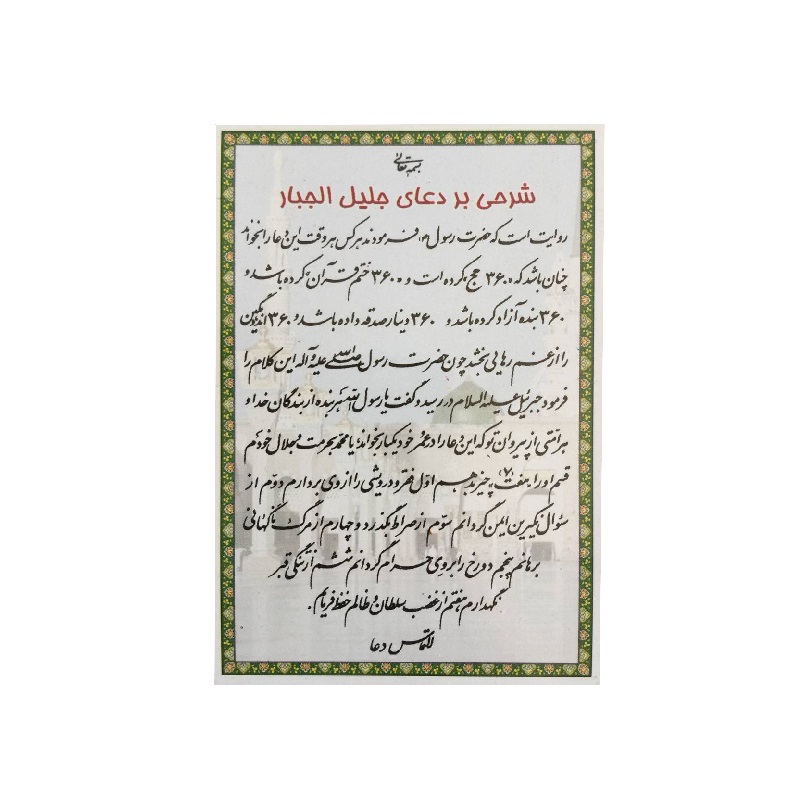 بسمه تعالی
شرحی بر دعای جلیل الجبار
روایت است که حضرت رسول (ص) فرمودند هر کس هر وقت این دعا را بخواند
چنان باشد که ۳۶۰ حج کرده است و ۳۶۰ ختم قرآن کرده باشد و
۳۶۰ بنده آزاد کرده باشد و ۳۶۰ دینار صدقه داده باشد و ۳۶۰ اندوهگین
را از غم رهایی بخشد چون حضرت رسول صلی الله علیه و آله این کلام را
فرمود جبرئیل علیه السلام در رسید و گفت یا رسول الله هر بنده از بندگان خدا و
هر امتی از پیروان تو که این دعا را در عمر خود یکبار بخواند؛ یا محمد بحرمت و جلال خودم
قسم او را هفت (۷) چیز بدهم اول فقر و درویشی را از وی بردارم دوم از
سؤال نکیرین ایمن گردانم سوم از صراط بگذرد و چهارم از مرگ ناگهانی
برهانم پنجم دوزخ را بر وی حرام گردانم ششم از تنگی قبر
نگهدارم هفتم از غضب سلطان و ظالم حفظ فرمایم.
التماس دعا